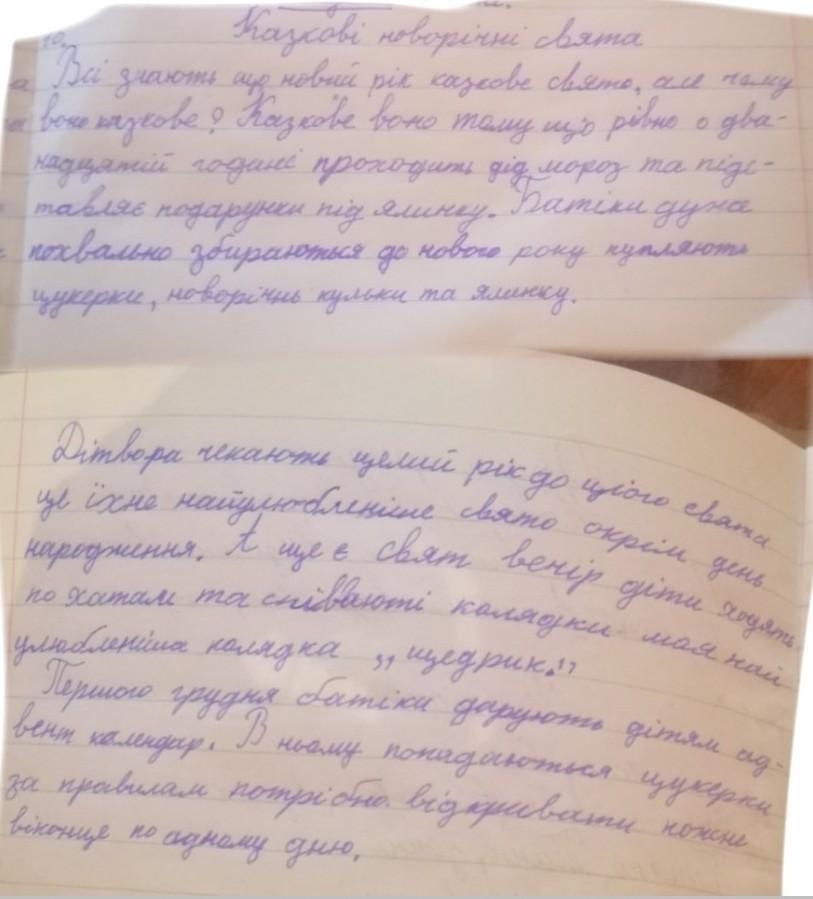 10.
Казкові новорічні свята
Всі знають що новий рік казкове свято, але чому
воно казкове? Казкове воно тому що рівно о два-
надцятій годані проходить дід мороз та підс-
тавляє подарунки під ялинку. Батіки дуже
похвально збираються до нового року купляють
цукерки, новорічнь кульки та ялинку.
Дітвора чекають целий рік до цього свята
це їхне найулюбленіше свято окрім день
народження. А ще є свят вечір діти ходять
по хатам та співаюті колядки моя най
улюбленіша колядка „щедрик."
Першого грудня батіки дарують дітям ад-
вент календар. В ньому попадаються цукерки
за правилам потрібно відкривати кожне
віконце по адному дню.